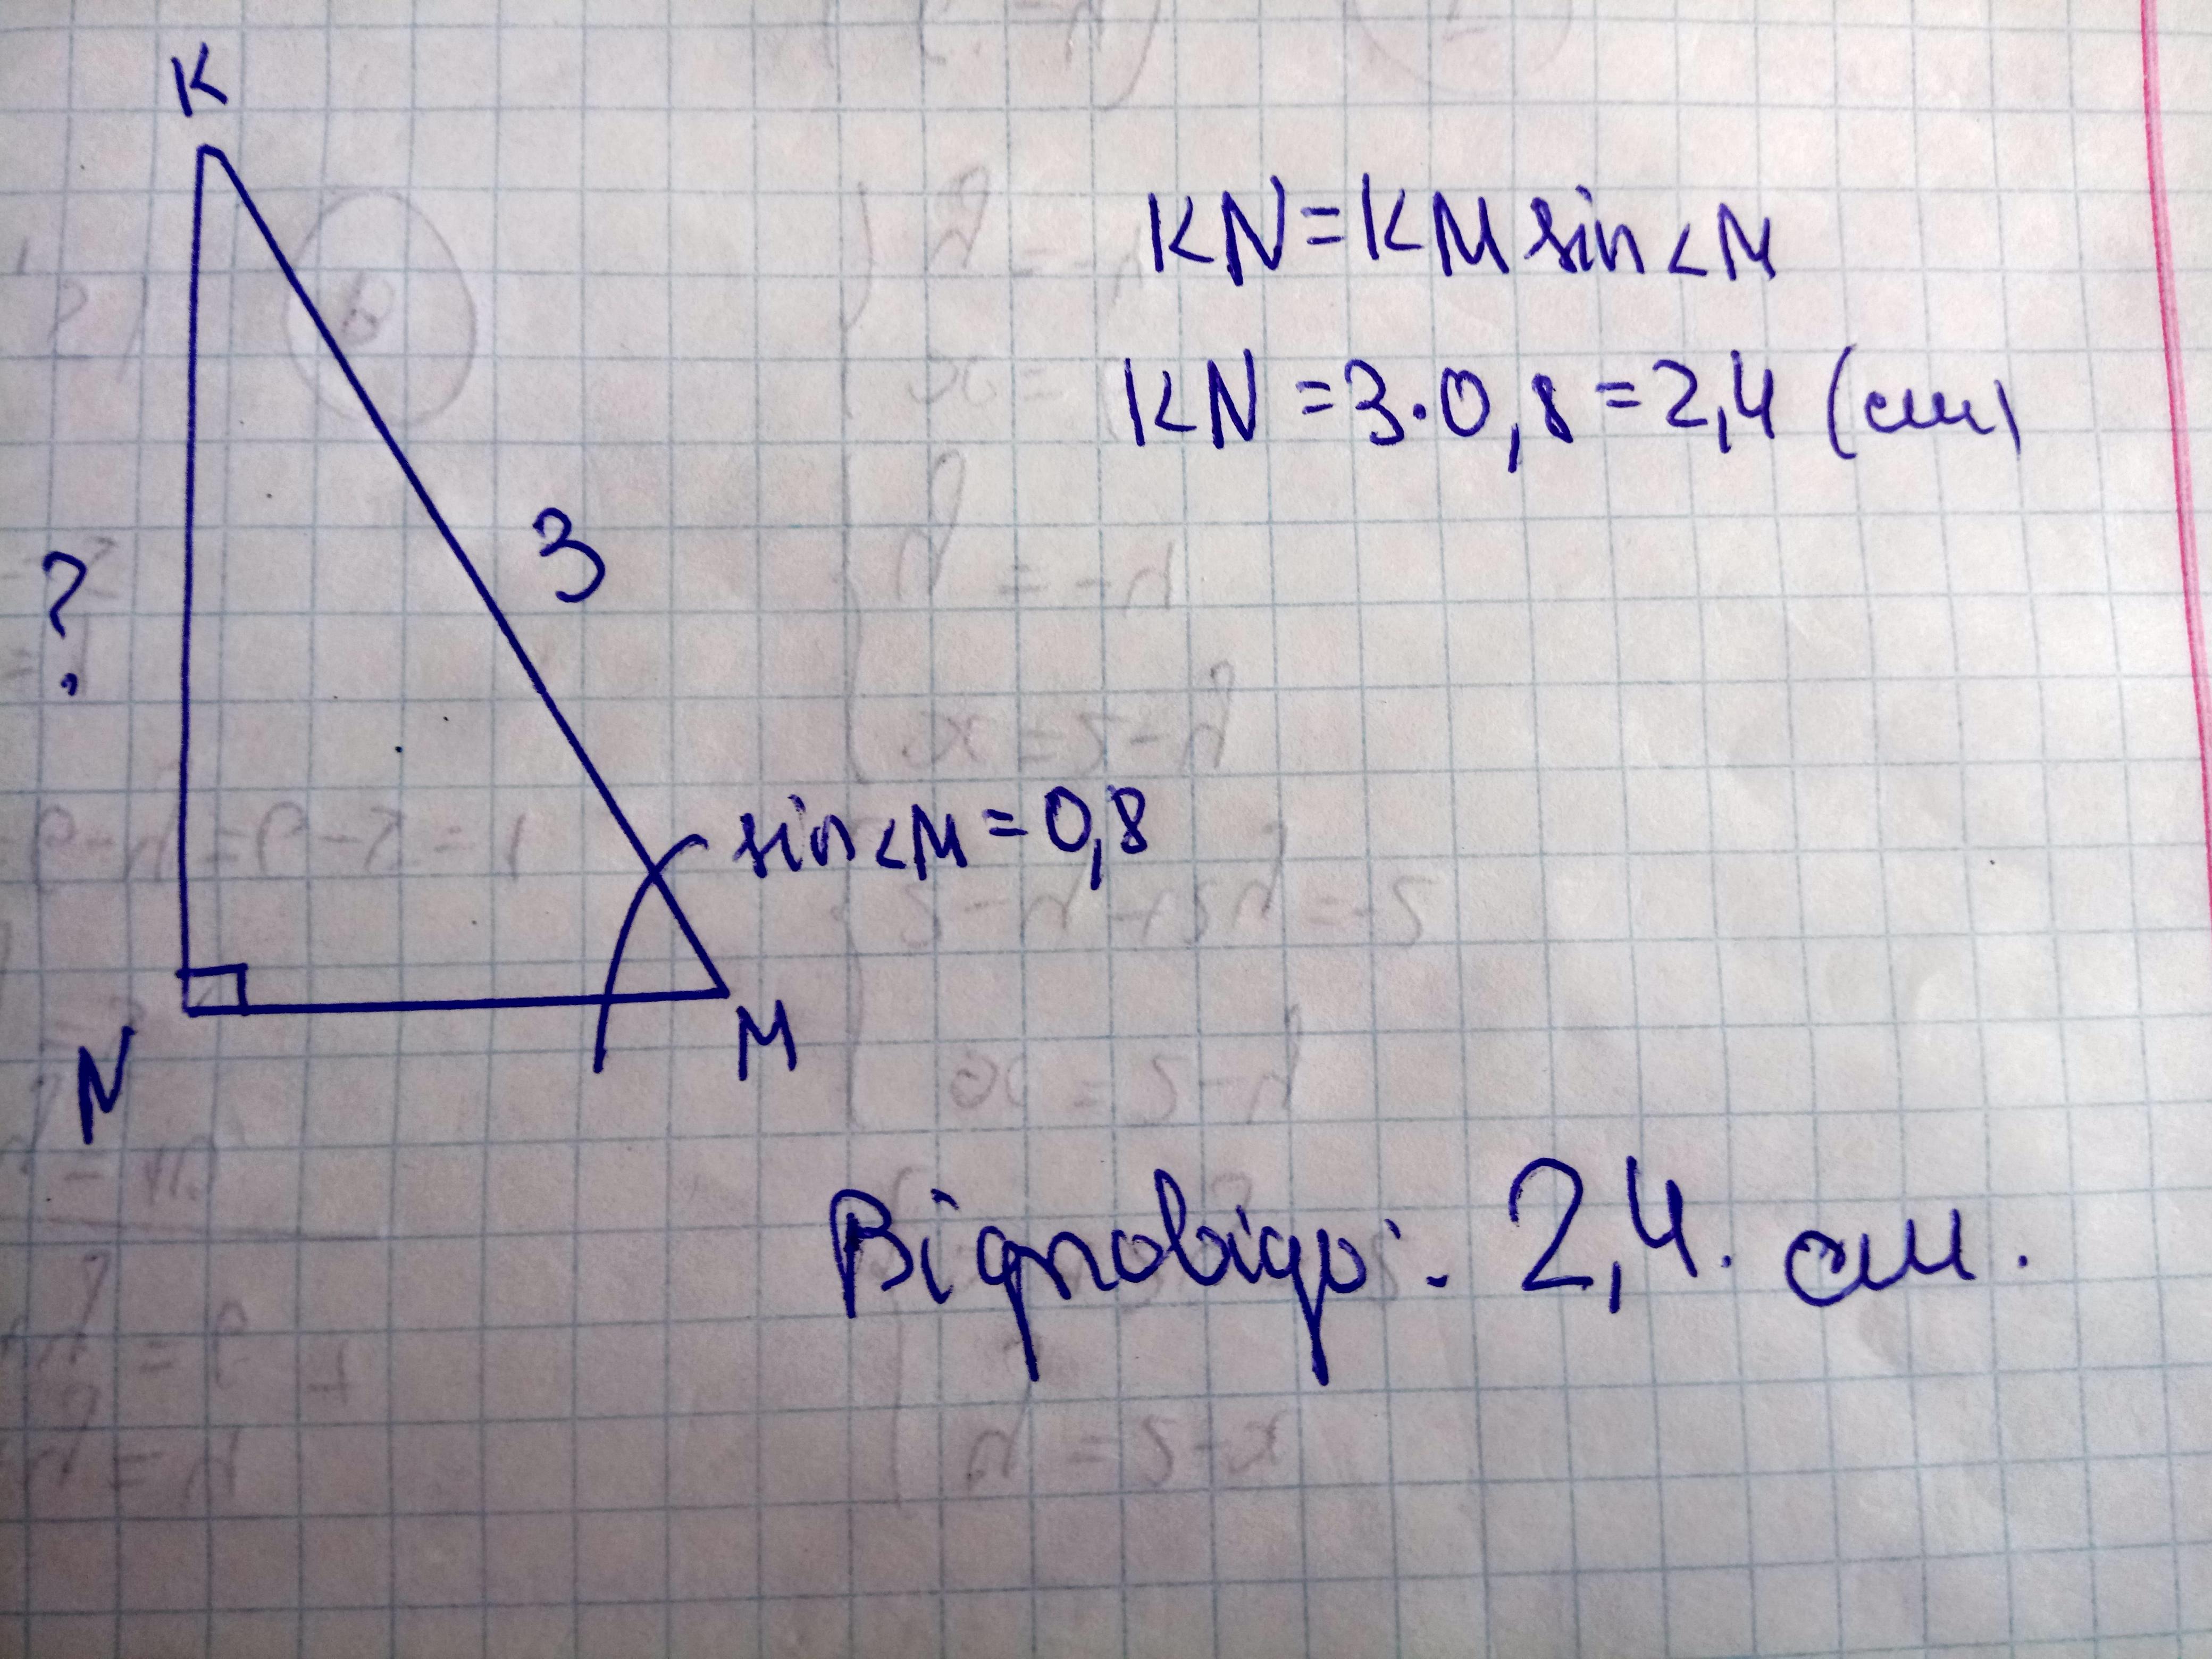 K
KN=KM sin<M
KN=3·0,8=2,4 (см)
3
?
sin<M=0,8
N
M
Відповідь: 2,4. см.